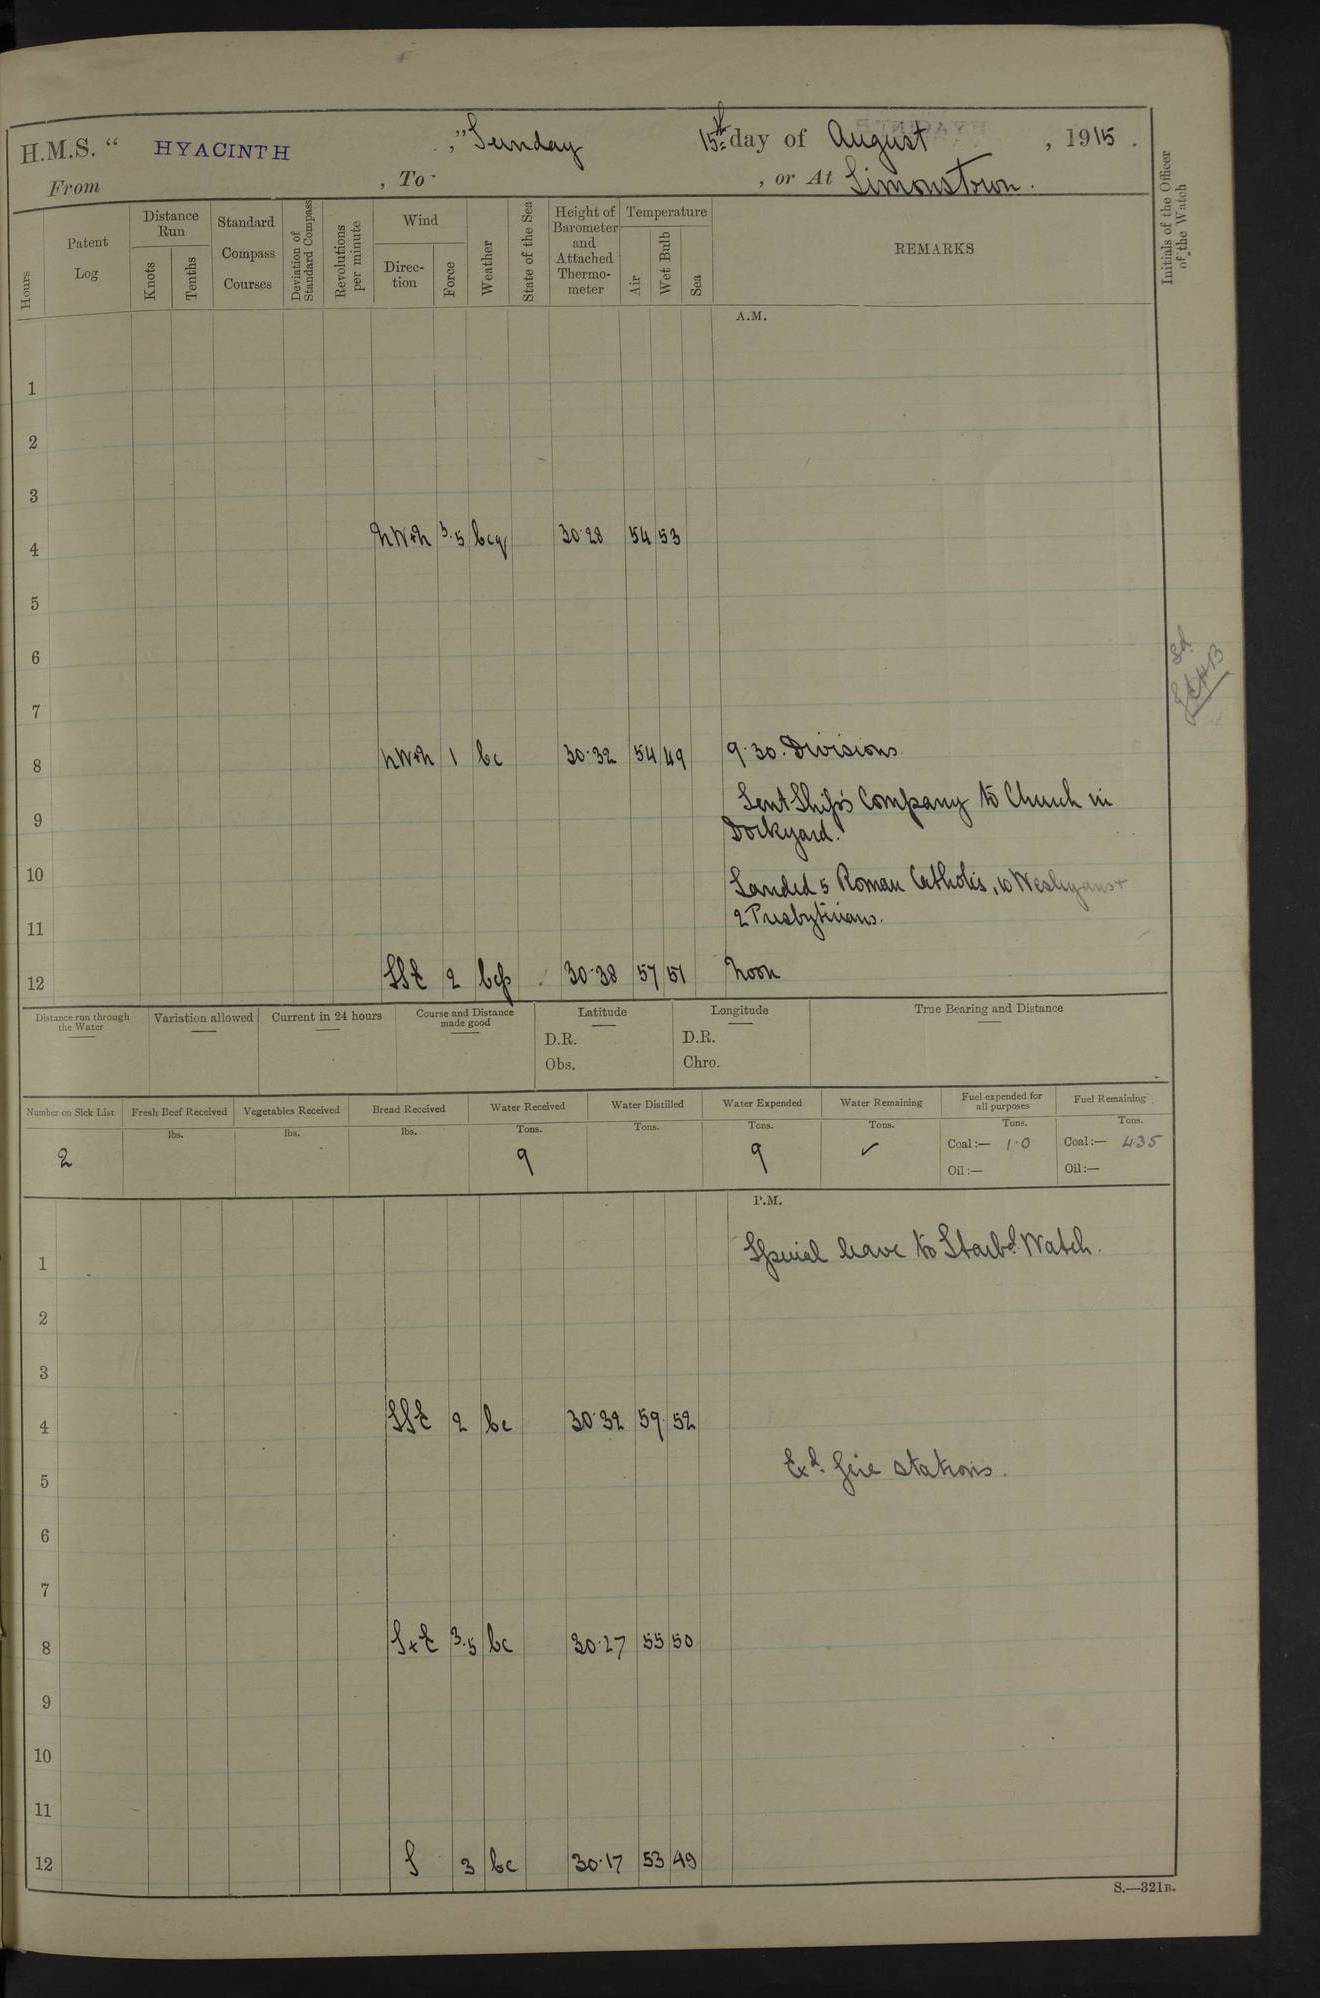 H.M.S. “ HYACINTH ,” Sunday 15th day of August , 1915 .
From , To , or At Simonstown.
Hours
Patent Log
Distance Run
Knots
Tenths
Standard Compass Courses
Deviation of Standard Compass
Revolutions per minute
Wind
Direc- tion
Force
Weather
State of the Sea
Height of Barometer and Attached Thermo- meter
Temperature
Air
Wet Bulb
Sea
REMARKS
Initials of the Officer of the Watch
A.M.
1
2
3
4 NW×N 3.5 bcq 30.28 54 53
5
6
7
8 NW×N 1 bc 30.32 54 49 9.30. Divisions.
Sent Ship's Company to Church in
9 Dockyard.
10 Landed 5 Roman Catholics, 10 Wesleyans +
11 2 Presbyterians.
12 SSE 2 bcp 30.38 57 51 Noon
Distance run through the Water
Variation allowed
Current in 24 hours
Course and Distance made good
Latitude
D.R.
Obs.
Longitude
D.R.
Chro.
True Bearing and Distance
Number on Sick List
2
Fresh Beef Received
lbs.
Vegetables Received
lbs.
Bread Received
lbs.
Water Received
Tons.
9
Water Distilled
Tons.
Water Expended
Tons.
9
Water Remaining
Tons.
✓
Fuel expended for all purposes
Tons.
Coal:— 1.0
Oil:—
Fuel Remaining
Tons.
Coal:— 435
Oil:—
P.M.
1 Special leave to Starbd. Watch.
2
3
4 SSE 2 bc 30.32 59 52
5 Exd. fire stations.
6
7
8 S×E 3.5 bc 30.27 55 50
9
10
11
12 S 3 bc 30.17 53 49
S.—321B.